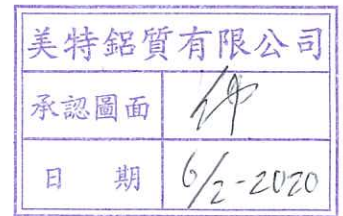 美特鋁質有限公司
承認圖面
日 期 6/2-2020